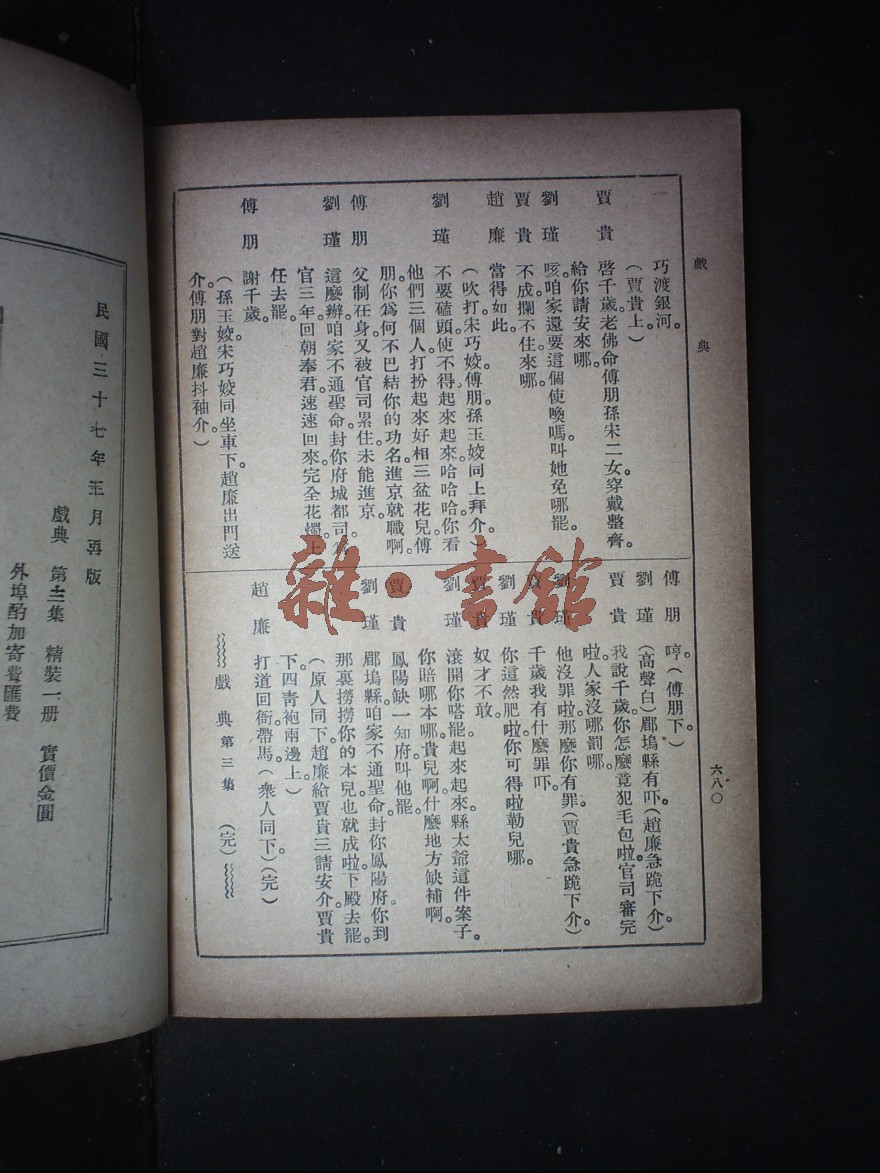 戲典
六八〇
巧渡銀河。
（賈貴上）
賈貴 啓千歲老佛命傅朋孫宋二女穿戴整齊。
給你請安來哪。
劉瑾 咳。咱家還要這個使喚嗎叫她免哪罷。
賈貴 不成攔不住來哪。
趙廉 當得如此。
（吹打宋巧姣。傅朋孫玉姣同上拜介）
劉瑾 不要磕頭。使不得起來起來哈哈哈。你看
他們三個人打扮起來好相三盆花兒傅
朋。你爲何不巴結你的功名進京就職啊。
傅朋 父制在身。又被官司累住。未能進京。
劉瑾 這麼辦。咱家不通聖命。封你府城都司
官三年回朝奉君。速速回來。完全花燭。上
任去罷。
傅朋 謝千歲。
（孫玉姣宋巧姣同坐車下。趙廉出門送
介傅朋對趙廉抖袖介。）
傅朋 哼。（傅朋下。）
劉瑾 （高聲白）郿塢縣有吓。（趙廉急跪下介）
賈貴 我說千歲。你怎麼竟犯毛包啦。官司審完
啦。人家沒哪罰哪。
劉瑾 他沒罪啦。那麼你有罪（賈貴急跪下介）
賈貴 千歲我有什麼罪吓。
劉瑾 你這然肥啦你可得啦勒兒哪。
賈貴 奴才不敢。
劉瑾 滾開你嗒罷。起來起來。縣太爺這件案子。
你賠哪本哪。貴兒啊。什麼地方缺補啊。
賈貴 鳳陽缺一知府。叫他罷。
劉瑾 郿塢縣。咱家不通聖命。封你鳳陽府。你到
那裏撈撈你的本兒也就成啦。下殿去罷。
（原人同下。趙廉給賈貴三請安介賈貴
下。四靑袍兩邊上。）
趙廉 打道回衙。帶馬。（衆人同下）（完）
戲典第三集 （完）
民國三十七年五月再版
戲典 第三集 精裝一册 實價金圓
外埠酌加寄費匯費
雜·書館